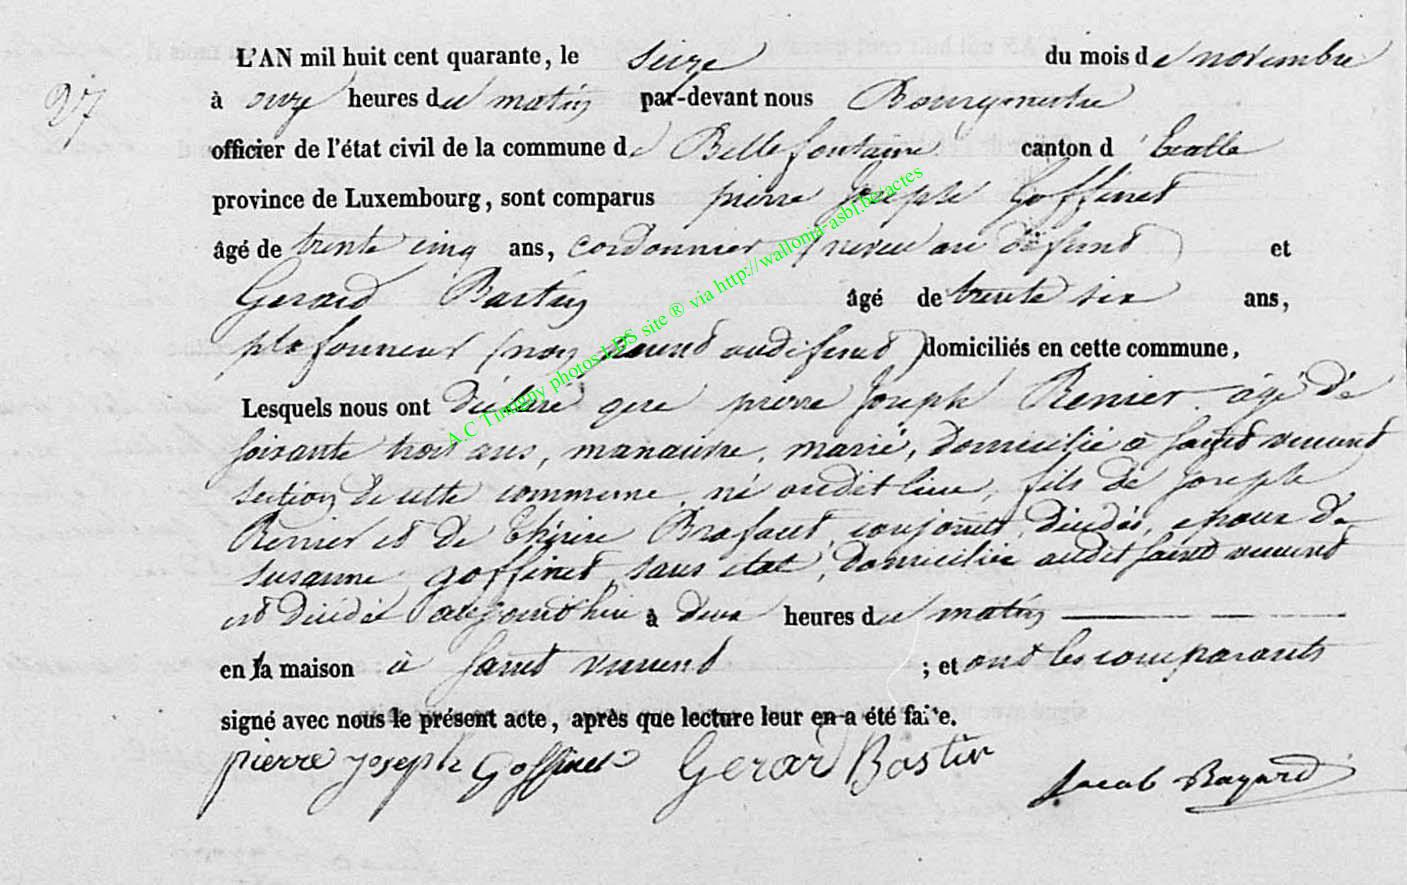 27
L'AN mil huit cent quarante, le seize du mois de novembre
à onze heures du matin par-devant nous Bourgmestre
officier de l'état civil de la commune de Bellefontaine canton d'Etalle
province de Luxembourg, sont comparus pierre Joseph Goffinet
âgé de trente cinq ans, cordonnier (neveu au défunt) et
Gerard Bastin âgé de trente six ans,
plafonneur (non parent audit défunt) domiciliés en cette commune,
Lesquels nous ont déclaré que pierre Joseph Renier âgé de
soixante trois ans, manœuvre, marié, domicilié à saint vincent
section de cette commune, né audit lieu, fils de Joseph
Renier et de Thérèse conjoints, décédés, époux de
susanne goffinet, sans état, domiciliée audit saint vincent
est décédé aujourd'hui à deux heures du matin
en sa maison à saint vincent ; et ont les comparants
signé avec nous le présent acte, après que lecture leur en a été faite.
pierre joseph Goffinet Gerard Bastin
Jacob Bayard
A.C Tintigny photos LDS site ® via http://wallonia-asbl.be/actes